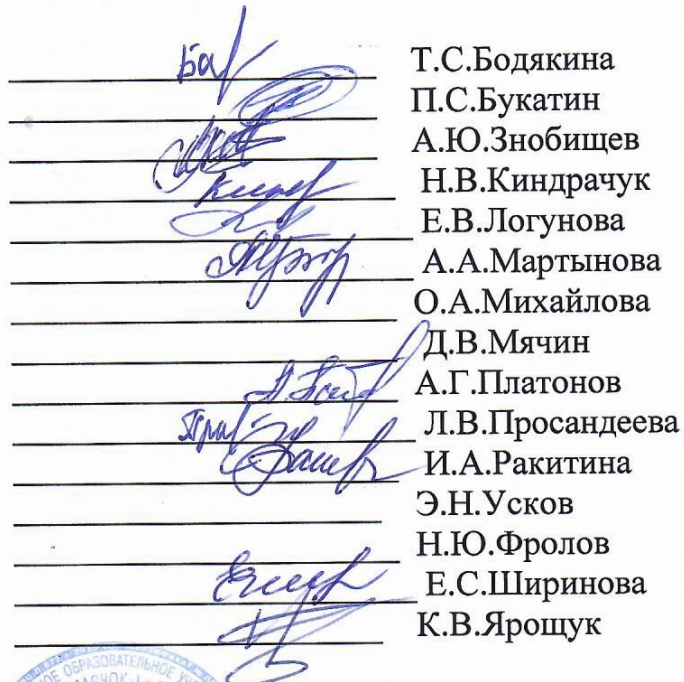 Т.С.Бодякина
П.С.Букатин
А.Ю.Знобищев
Н.В.Киндрачук
Е.В.Логунова
А.А.Мартынова
О.А.Михайлова
Д.В.Мячин
А.Г.Платонов
Л.В.Просандеева
И.А.Ракитина
Э.Н.Усков
Н.Ю.Фролов
Е.С.Ширинова
К.В.Ярощук
ОБРАЗОВАТЕЛЬНОЕ